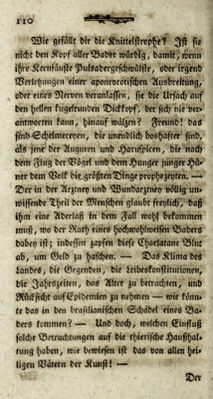 110
Wie gefällt dir die Knittelstrophe? Ist sie
nicht den Kopf aller Bader würdig, damit, wenn
ihre Kernfäuste Pulsadergeschwülste, oder irgend
Verletzungen einer aponevrotischen Ausbreitung,
oder eines Nerven veranlassen, sie die Ursach auf
den hellen kugelrunden Dickkopf, der sich nie ver-
antworten kann, hinauf wälzen? Freund! das
sind Schelmereyen, die unendlich boshafter sind,
als jene der Auguren und Haruspicen, die nach
dem Flug der Vögel und dem Hunger junger Hü-
ner dem Volk die größten Dinge prophezeyten. —
Der in der Arztney und Wundarztney völlig un-
wissende Theil der Menschen glaubt freylich, daß
ihm eine Aderlaß in dem Fall wohl bekommen
muß, wo der Rath eines hochwohlweisen Baders
dabey ist; indessen zapfen diese Charlatane Blut
ab, um Geld zu haschen. — Das Klima des
Landes, die Gegenden, die Leibskonstitutionen,
die Jahrszeiten, das Alter zu betrachten, und
Rücksicht auf Epidemien zu nehmen — wie könn-
te das in den brasilianischen Schädel eines Ba-
ders kommen? — Und doch, welchen Einfluß
solche Betrachtungen auf die thierische Haushal-
tung haben, wie bewiesen ist das von allen hei-
ligen Vätern der Kunst! —
Der